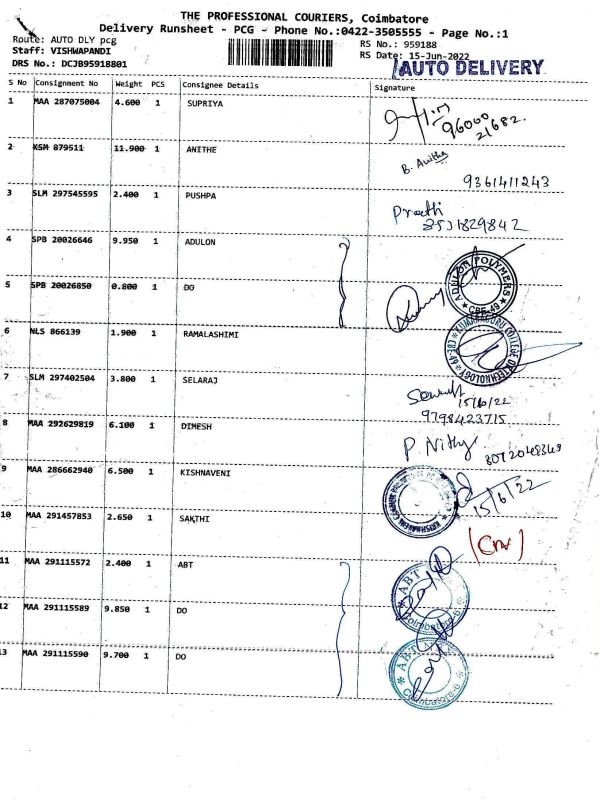 THE PROFESSIONAL COURIERS, Coimbatore
Delivery Runsheet - PCG - Phone No.:0422-3505555 - Page No.:1
Route: AUTO DLY pcg RS No.: 959188
Staff: VISHWAPANDI RS Date: 15-Jun-2022
DRS No.: DCJB95918801 AUTO DELIVERY
S No Consignment No Weight PCS Consignee Details Signature
1 MAA 287075004 4.600 1 SUPRIYA
96000
21682
2 KSM 879511 11.900 1 ANITHE B. Anitha
9361411243
3 SLM 297545595 2.400 1 PUSHPA Preethi
4 SPB 20026646 9.950 1 ADULON
ADULON POLYMERS CBE-49
5 SPB 20026850 0.800 1 DO
6 NLS 866139 1.900 1 RAMALASHIMI
KUMARAGURU COLLEGE OF TECHNOLOGY
7 SLM 297402504 3.800 1 SELARAJ
9798423715
8 MAA 292629819 6.100 1 DIMESH P. Nithy
9 MAA 286662940 6.500 1 KISHNAVENI
15/6/22
10 MAA 291457853 2.650 1 SAKTHI
11 MAA 291115572 2.400 1 ABT
ABT Coimbatore-6
12 MAA 291115589 9.850 1 DO
13 MAA 291115590 9.700 1 DO
ABT Coimbatore-6